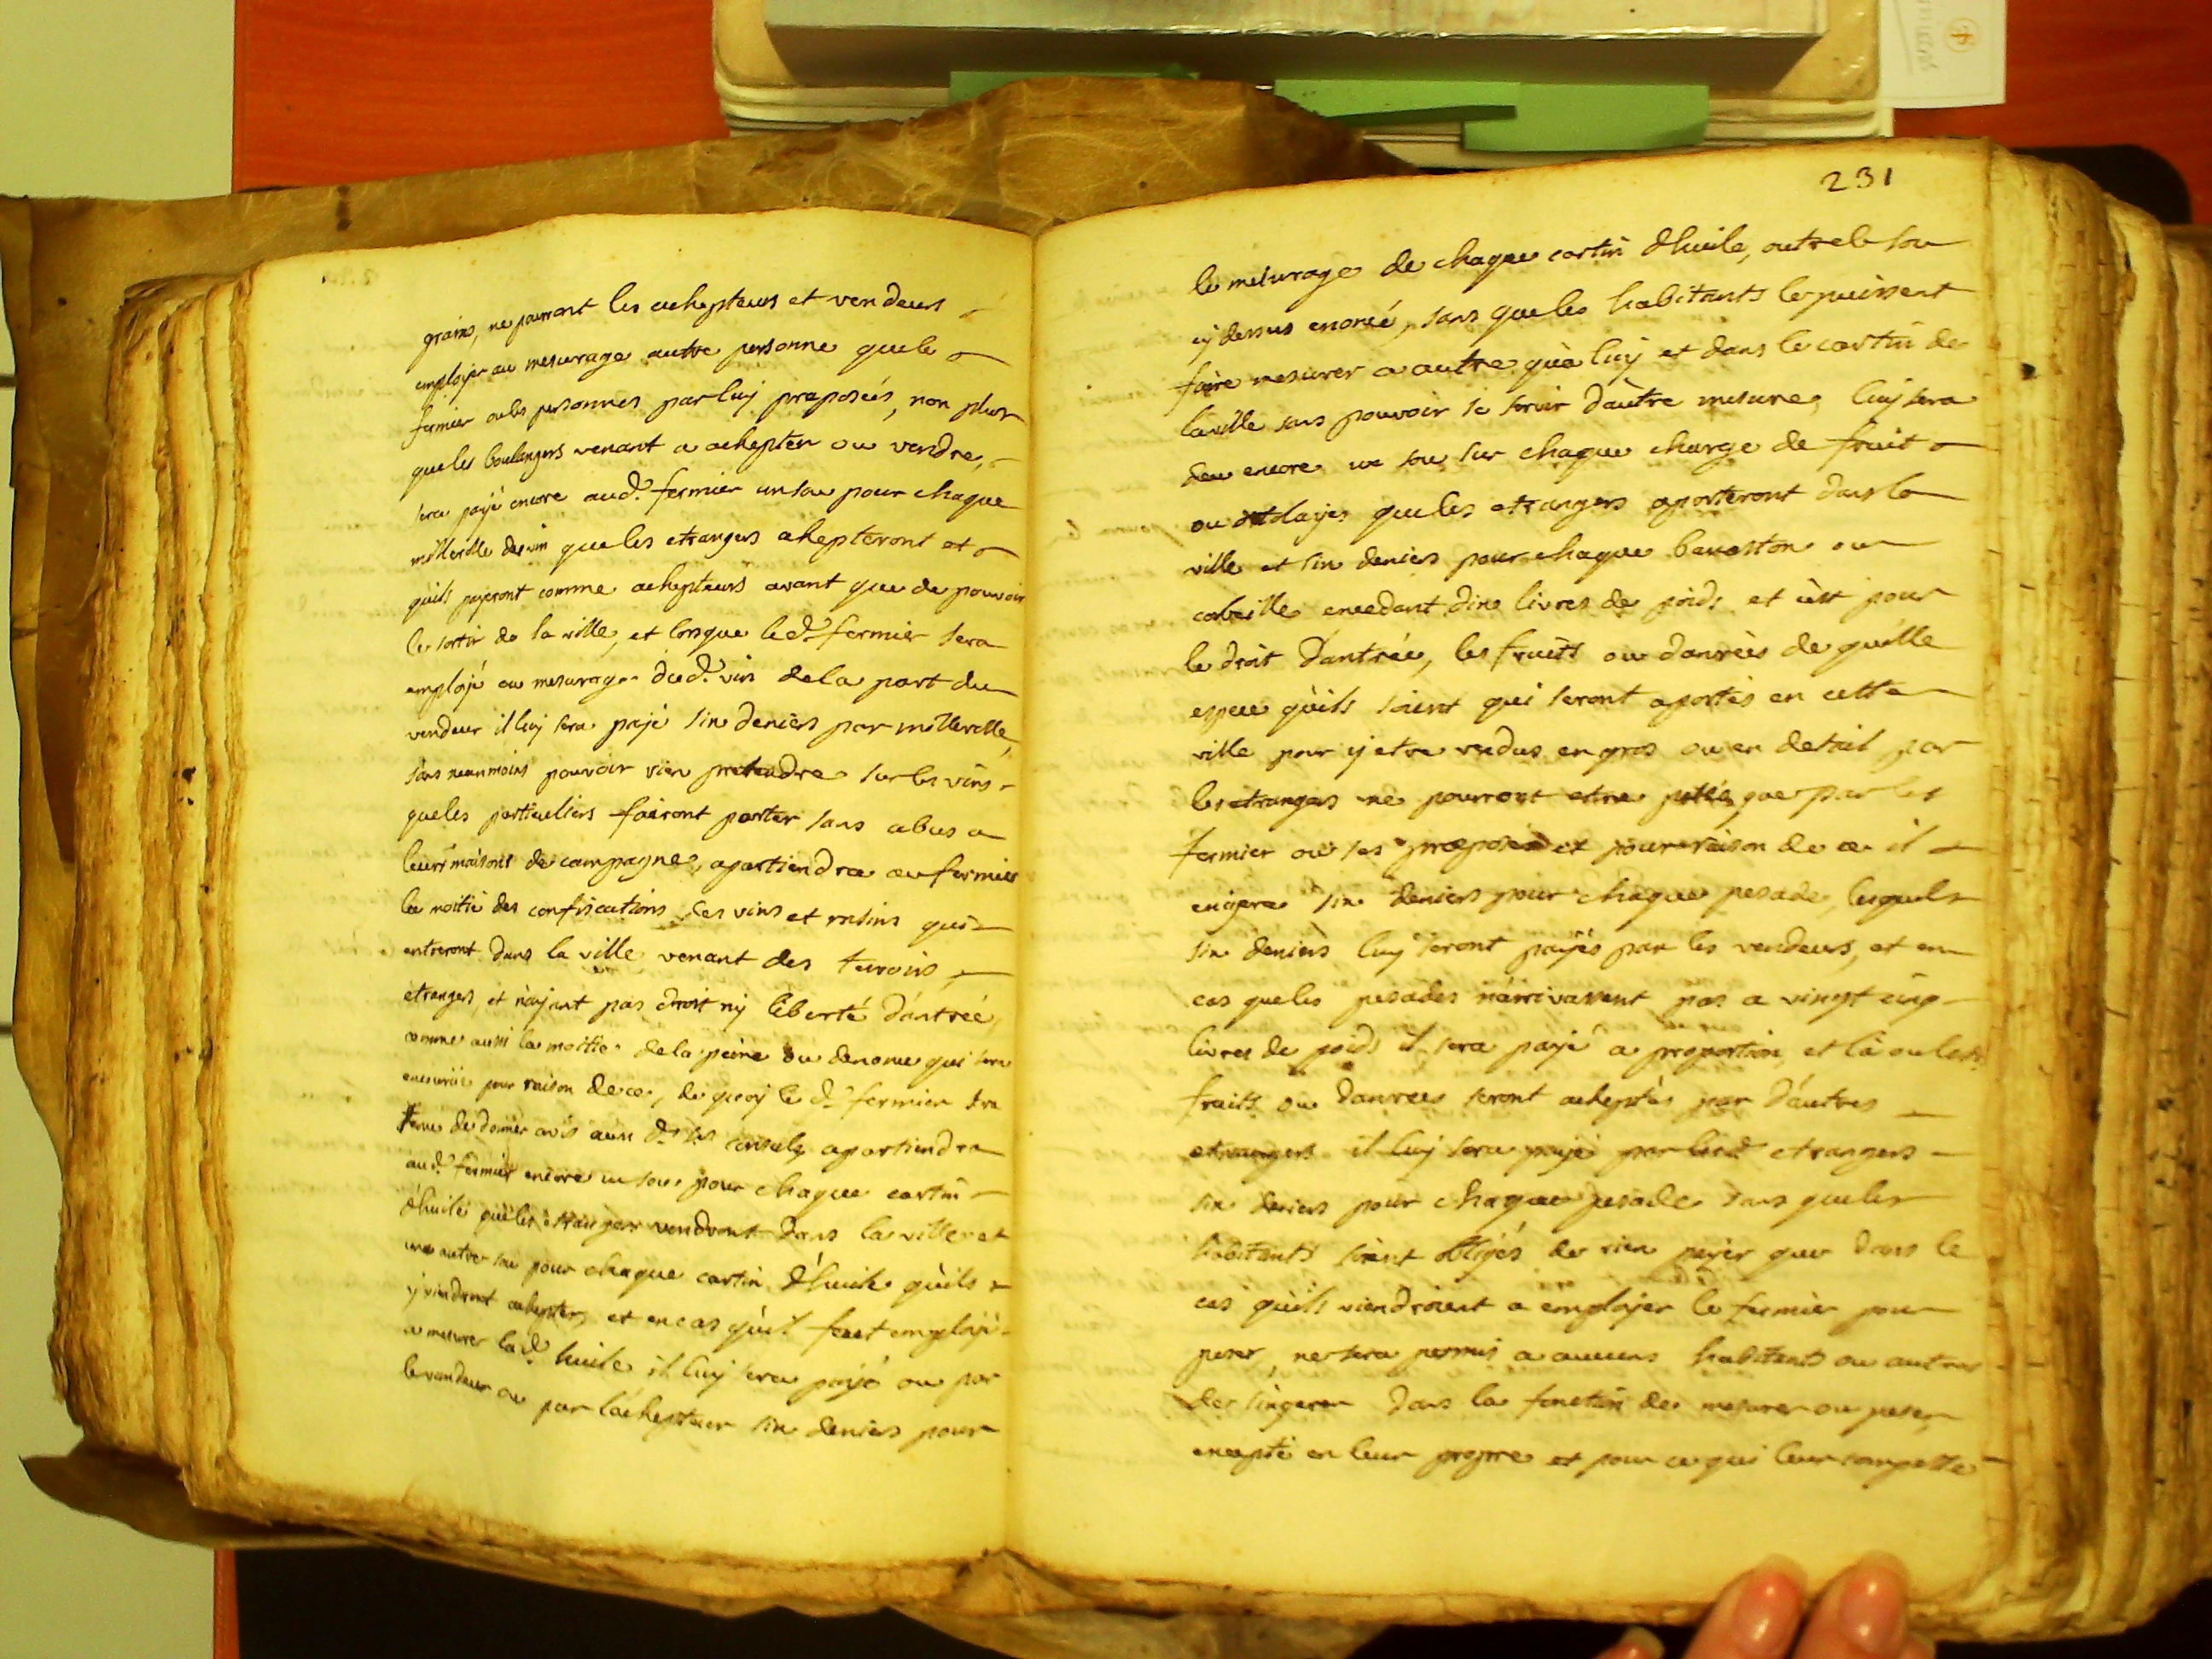 grains, ne pourront les achepteurs et vendeurs
employer au mesurage autre personne que le
fermier ou les personnes par luy preposées, non plus
que les boulangers venant a achepter ou vendre,
sera payé encore aud. fermier un sou pour chaque
millerolle de vin que les etrangers achepteront et
quils payeront comme achepteurs avant que de pouvoir
le sortir de la ville, et lorsque led. fermier sera
employé au mesurage dud. vin de la part du
vendeur il luy sera payé six deniers par millerolle,
sans neanmoins pouvoir rien pretendre sur les vins
que les particuliers fairont porter sans abus a
leurs maisons de campagne, apartiendra au fermier
la moitié des confiscations des vins et raisins qui
entreront dans la ville venant des terroirs
etrangers, et n'ayant pas droit ny liberté d'antrée,
comme aussi la moitié de la peine ou denonce qui sera
encourüe pour raison de ce, de quoy le d. fermier sera
tenu de donner avis aux d. srs consuls, apartiendra
aud. fermier encore un sou pour chaque cartin
d'huile que les etrangers vendront dans la ville et
un autre sou pour chaque cartin d'huile qu'ils
y viendront achepter, et en cas qu'il feut employé
a mesurer lad. huile il luy sera payé ou par
le vandeur ou par l'achepteur six deniers pour
231
le mesurage de chaque cartin d'huile, outre le sou
cy dessus enoncé, sans que les habitants le puissent
faire mesurer a autre qu'a luy et dans le cartin de
la ville sans pouvoir se servir d'autre mesure, luy sera
deu encore un sou sur chaque charge de fruit
ou que les etrangers aporteront dans la
ville et six deniers pour chaque banaston ou
corbeille excedant dix livres de poids et c'est pour
le droit d'antrée, les fruits ou danrées de quelle
espece qu'ils soient qui seront aportés en cette
ville pour y etre vendus en gros ou en detail par
les etrangers ne pourront etre que par les
fermier ou ses preposés et pour raison de ce il
exigera six deniers pour chaque pesade, lesquels
six deniers luy seront payés par les vendeurs, et en
cas que les pesades n'arrivassent pas a vingt cinq
livres de poids il sera payé a proportion, et la ou lesd.
fruits ou danrees seront acheptés par d'autres
etrangers il luy sera payé par lesd. etrangers
six deniers pour chaque pesade sans que les
habitants soient obligés de rien payer que dans le
cas qu'ils viendroient a employer le fermier pour
peser, ne sera permis a aucuns habitents ou autres
de s'ingerer dans la fonction de mesurer ou peser,
excepté en leur propre et pour ce qui leur compette